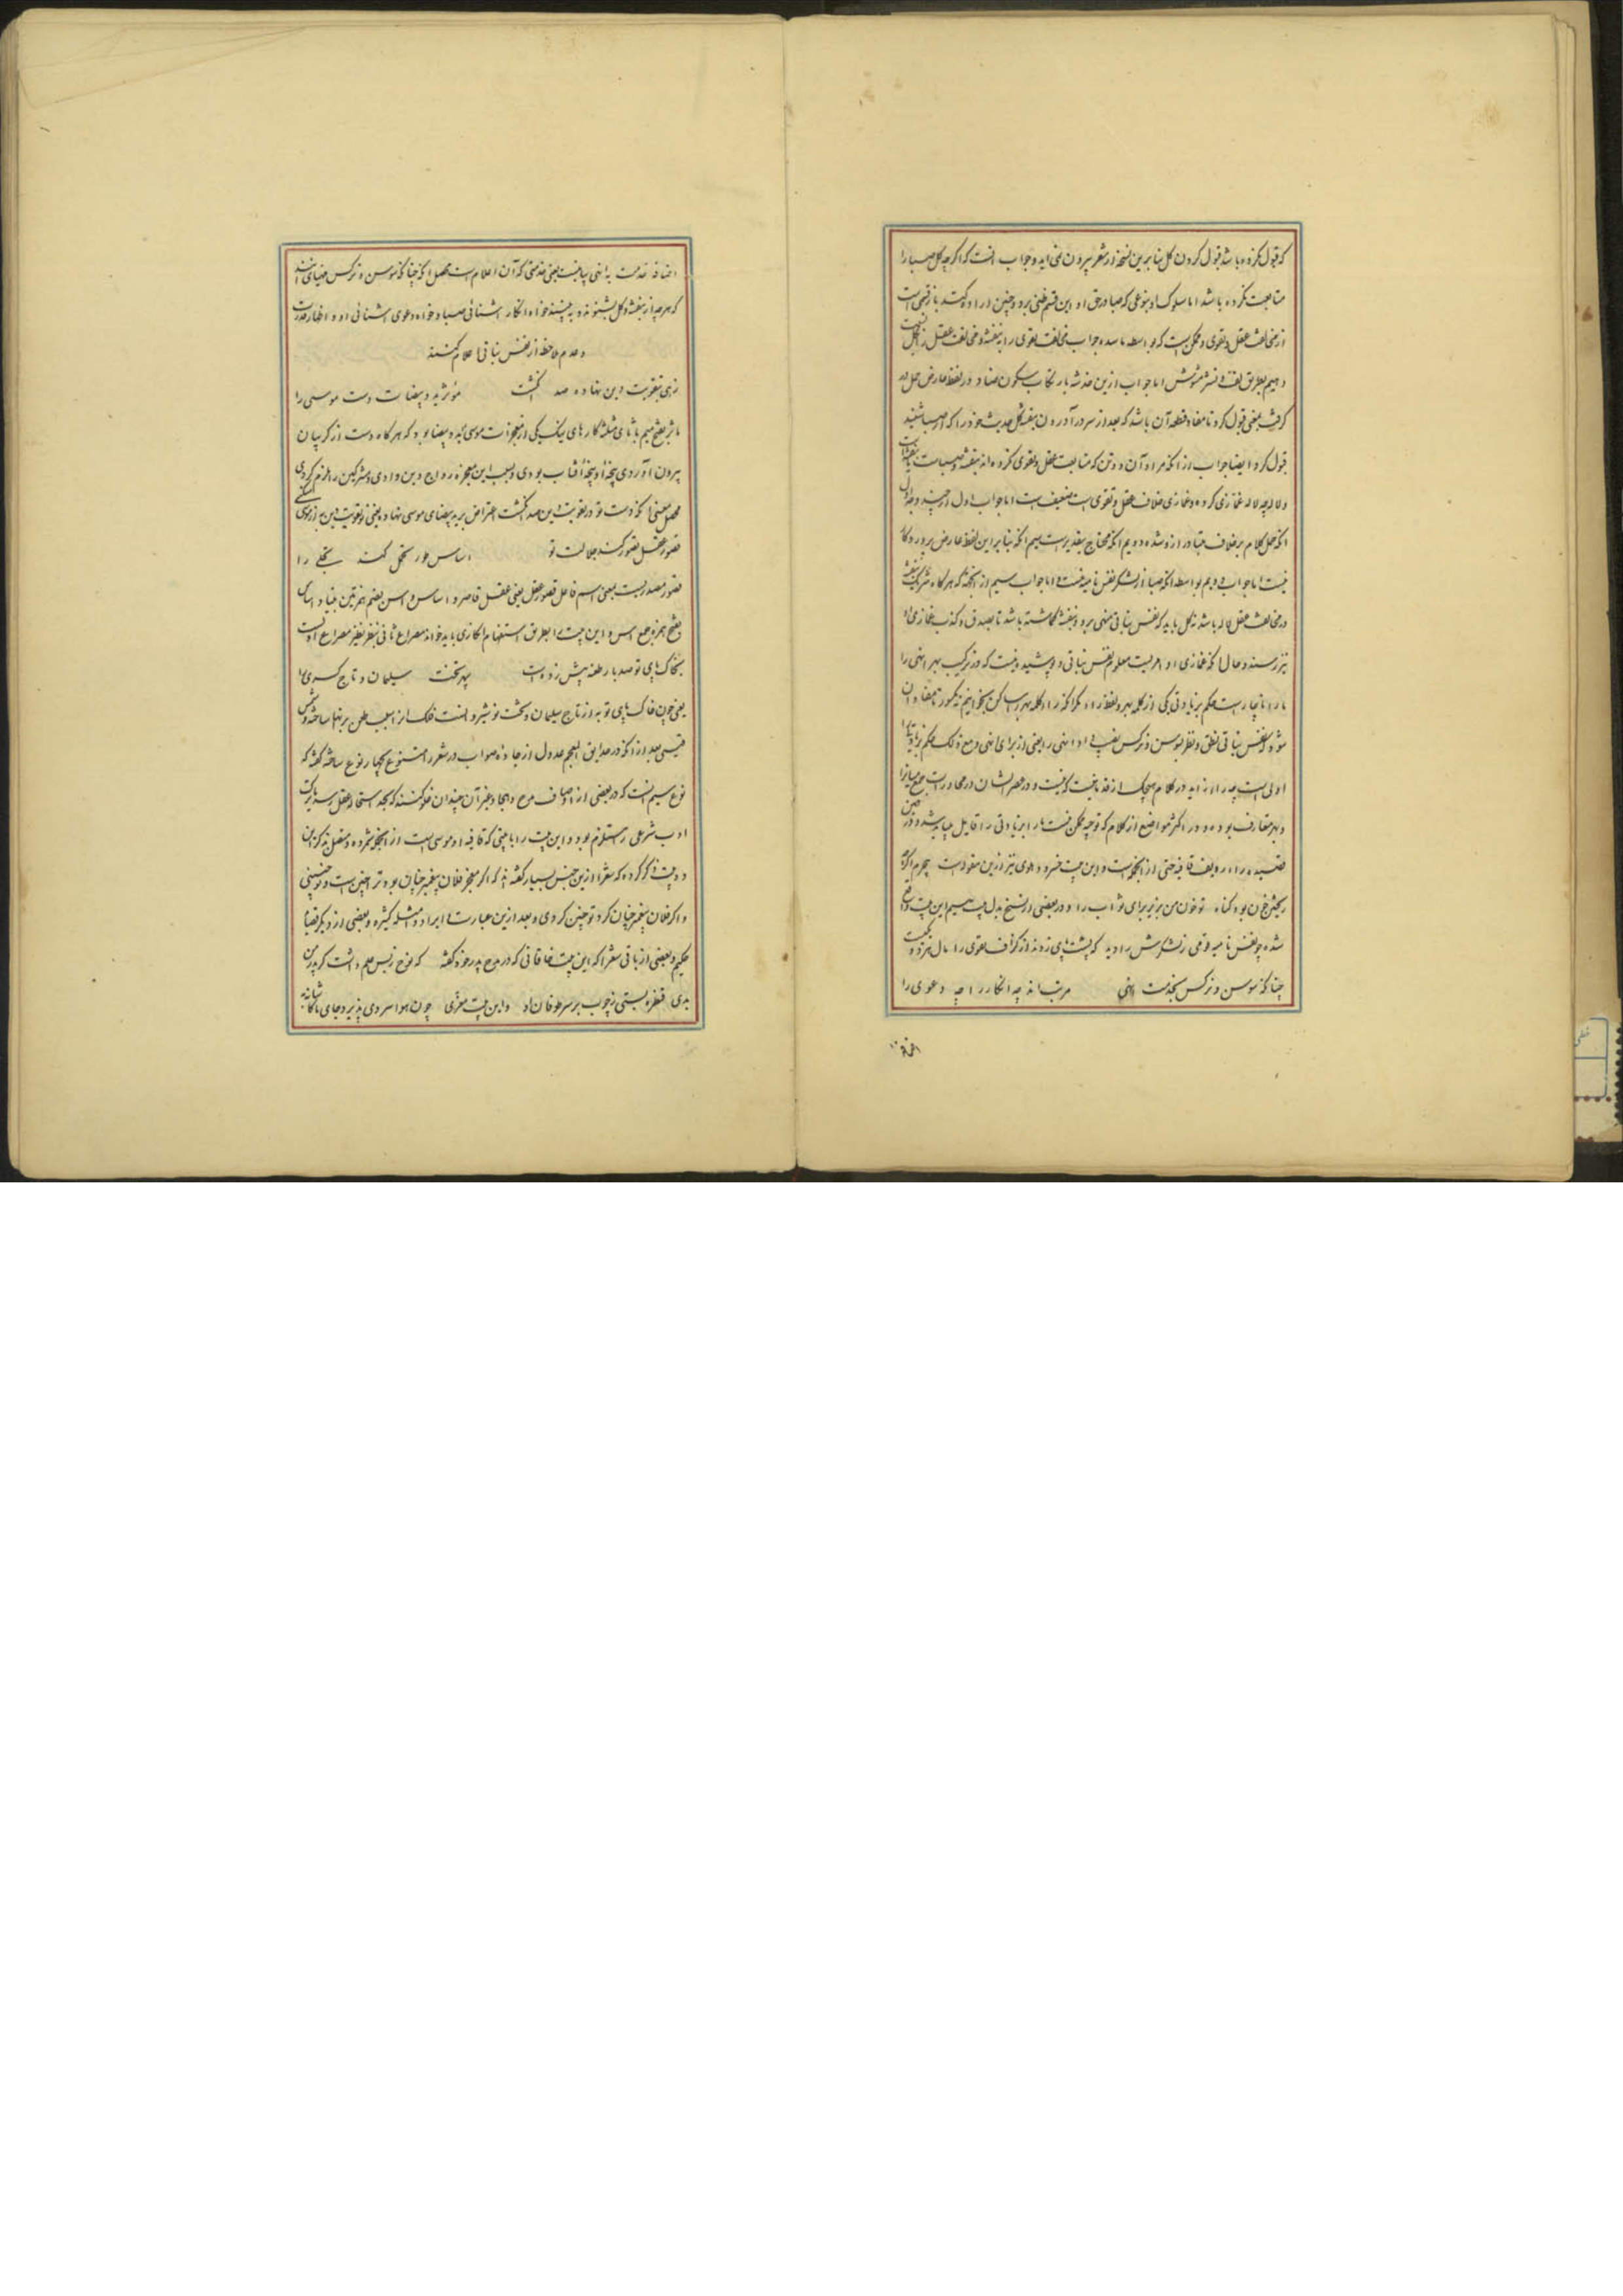 که قبول نکرده باشد قبول کردن گل بنابرین نسخه از شعر بیرون نمی آید و جواب آنست که اگرچه گل صبا را
متابعت نکرده باشد اما سلوک او بنوعی که صبا در حق او این قسم ظنی برد و چنین اراده کند بازقسمی است
از مخالفت عقل و تقوی و ممکن است که بواسطه جواب مخالفت تقوی را به بنفشه و مخالفت عقل را بگل
دهیم بطریق لف و نشر مشوش اما جواب ازین خدشه بارتکاب سکون ضاد در لفظ عارض حمل
گرفت یعنی قبول کرد تا مفاد قطعه آن باشد که بعد از سر در آوردن بنفشه گل حدیث خود را که از صبا شنید
قبول کرد ایضا جواب از آنکه مراد آن دو تن که متابعت عقل و تقوی نکرده اند بنفشه و صباست یا بنفشه
و لاله چه لاله غمازی کرده و غمازی خلاف عقل و تقوی است ضعیف است اما جواب اول از چند وجه اول
آنکه حمل کلام بر خلاف متبادر ازو شده دویم آنکه محتاج بتقدیر است سیم آنکه بنابر این لفظ عارض بر روکار
نیست اما جواب دویم بواسطه آنکه صبا از لشکر نفس نامیه نیست و اما جواب سیم از آنجهة که هرگاه شریک بنفشه
در مخالفت عقل لاله باشد نه گل باید که نفس نباتی منهی برو و بنفشه گماشته باشد تا بصدق و کذب غمازی او
نیز رسند و حال آنکه غمازی او امریست معلوم نفس نباتی و پوشیده نیست که در ترکیب بهر انهی را
ما را ناچارست حکم بزیادتی یکی از کلمه بهر و لفظ را مگر آنکه را و کلمه بهر را ساکن بخوانیم نه مکسور تا مفاد آن
شود که نفس نباتی نطق و نظر بسوسن و نرگس نفس داد انهی را یعنی از برای انهی و مع ذلک حکم بزیادتی را
اولی است چه را زاید در کلام هیچیک از قدما نیست که نیست و در عصر ایشان در محاورات جمع سایر را
و بهر متعارف بوده و در اکثر مواضع از کلام که توجیه ممکن نیست ما را بزیادتی را قایل میباید شد و در همین
قصیده را ردیف قافیه حتی از آنجمله است و این بیت خسرو دهلوی نیز ازین مقوله است بجرم آنکه
ریختن خون بود گناه تو خون من بریز برای ثواب را و در بعضی از نسخ بدل بیت سیم این بیت واقع
شده چو نفس نامیه قومی ز لشکرش را دید که پشت پای زدند از گزاف تقوی را مآل هر دو یکیست
چنانکه سوسن و نرگس بخدمت انهی مرتب اند چه انکار را چه دعوی را
اضافه
اضافه خدمت به انهی بیانیست یعنی خدمتی که آن اعلام است محصل آنکه چنانکه سوسن و نرگس مهیای آنند
که هرچه از بنفشه و گل بشنوند و به بینند خواه انکار آشنائی صبا و خواه دعوی آشنائی او و اظهار قدرت
و عدم ملاحظه از نفس نباتی اعلام کنند
زهی بتقویت دین نهاده صد انگشت مآثر ید بیضات دست موسی را
مآثر بفتح میم با ثای مثلثه کارهای نیک یکی از معجزات موسی ید و بیضا بود که هرگاه دست از گریبان
بیرون آوردی پنجه او پنجه آفتاب بودی و بسبب این معجزه رواج دین دادی و مشرکین را ملزم کردی
محصل معنی آنکه دست تو در تقویت دین صد انگشت اعتراض بر ید بیضای موسی نهاده یعنی تو تقویت دین به از موسی
قصور عقل تصور کند جلالت تو اساس طور تحمل کند تجلی را
قصور مصدریست بمعنی اسم فاعل قصور عقل یعنی عقل قاصر و اساس و اسس بضم همزتین بنیاد اساس
بفتح همزه جمع اس و این بیت را بطریق استفهام انکاری باید خواند مصراع ثانی بنظر نظیر مصراع اولست
بخاک پای تو صد بار طعنه بیش زدست سپهر تخت سلیمان و تاج کسری را
یعنی چون خاک پای تو به از تاج سلیمان و تخت نوشیروانست فلک از این سبب طعن بر آنها ساخته و شمس
قیسی بعد از آنکه در حدایق العجم عدول از جاده صواب در شعر را متنوع بچهار نوع ساخته گفته که
نوع سیم آنست که در بعضی از اوصاف مدح و هجا و غیر آن چندان غلو کنند که بحد استحاله عقل رسد یا ترک
ادب شرعی را مستلزم بود و این بیت را با بیتی که قافیه او موسی است از آنجمله شمرده و متصل بذکر این
دو بیت ذکر کرده که شعرا ازین جنس بسیار گفته اند که اگر معجز فلان پیغمبر چنان بود ترا چنین است و تو چنینی
و اگر فلان پیغمبر چنان کرد تو چنین کردی و بعد ازین عبارت ایراد امثله کثیره و بعضی از دیگر قصاید
حکیم و بعضی از باقی شعرا که این بیت خاقانی که در مدح پدر خود گفته که نوح ز بس علم داشت گر پدر من
بدی قنطره بستی ز چوب بر سر طوفان او و این بیت معزی چون هوا سردی پذیرد جای ما کاشانه به